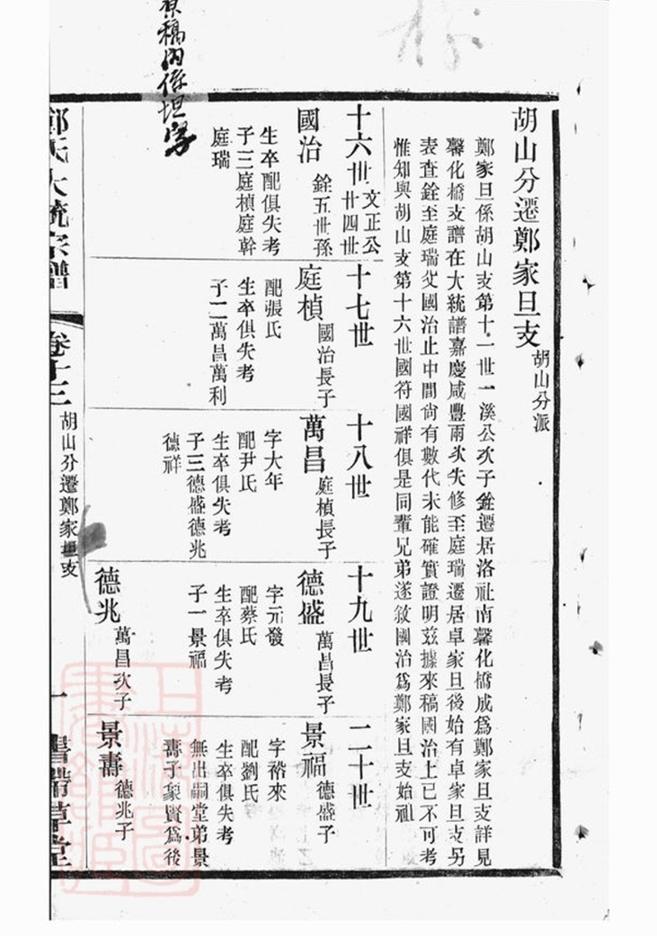 胡山分遷鄭家旦支
胡山分派
鄭家旦係胡山支第十一世一溪公次子銓遷居洛社南馨化橋成爲鄭家旦支詳見
馨化橋支譜在大統譜嘉慶咸豐兩次失修至庭瑞遷居卓家旦後始有卓家旦支另
表查銓至庭瑞父國治止中間尙有數代未能確實證明兹據來稿國治上已不可考
惟知與胡山支第十六世國符國祥俱是同輩兄弟遂敘國治爲鄭家旦支始祖
十六世
文正公
廿四世
國治
銓五世孫
生卒配俱失考
子三庭楨庭幹
庭瑞
十七世
庭楨
國治長子
配張氏
生卒俱失考
子二萬昌萬利
十八世
萬昌
庭楨長子
字大年
配尹氏
生卒俱失考
子三德盛德兆
德祥
十九世
德盛
萬昌長子
字元發
配蔡氏
生卒俱失考
子一景福
德兆
萬昌次子
二十世
景福
德盛子
字裕來
配劉氏
生卒俱失考
無出嗣堂弟景
壽子象賢爲後
景壽
德兆子
鄭氏大統宗譜
卷十三
胡山分遷鄭家旦支
一
書帶草堂
原稿內係坦字